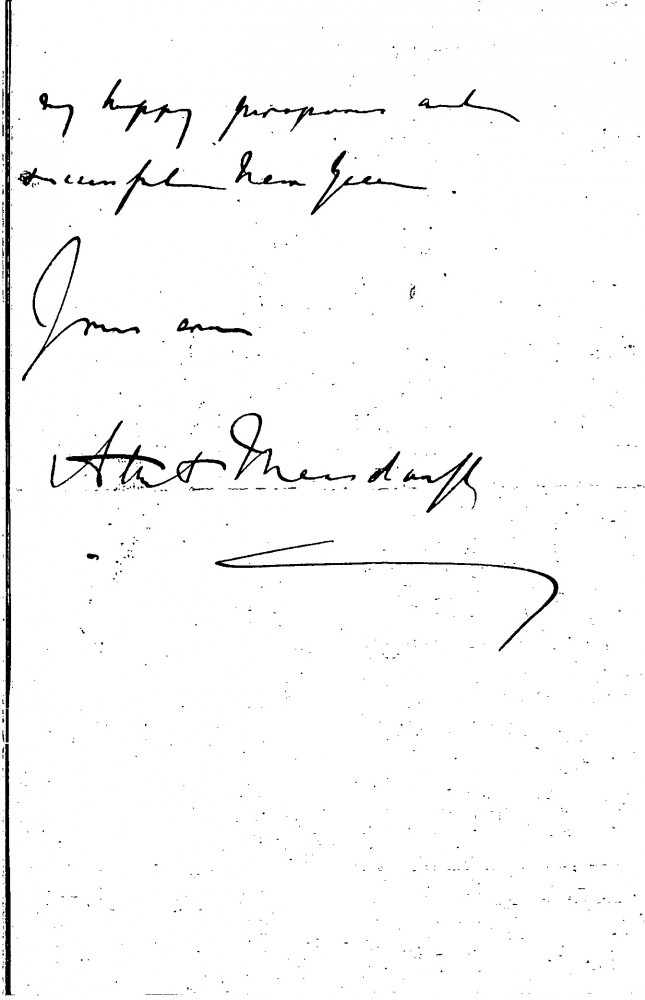 ry happy prosperous and
successful New Year.
Yours ever
Albert Mensdorff